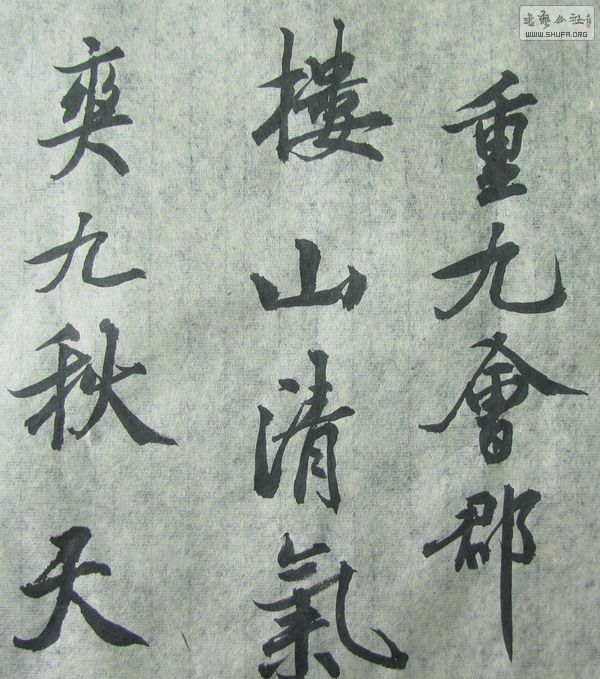 重九會郡
樓山清氣
爽九秋天
書藝公社
WWW.SHUFA.ORG